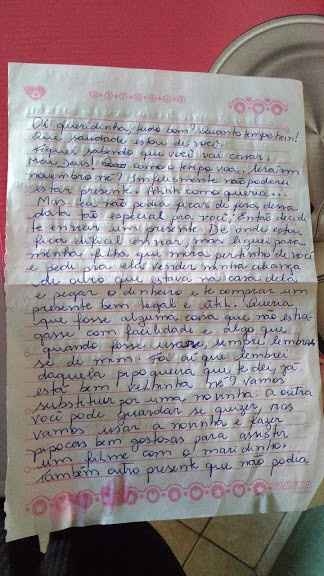 Oi queridinha, tudo bem? Quanto tempo hein!
Que saudade estou de você!
Fiquei sabendo que você vai casar!
Meu Deus! como o tempo voa, será em
novembro né? Infelizmente não poderei
estar presente. Ahhh como queria!
Mas eu não podia ficar de fora dessa
data tão especial pra você. Então decidi
te enviar um presente. De onde estou
fica difícil enviar, mas liguei para
minha filha que mora pertinho de você
e pedi pra ela vender minha aliança
de ouro que estava na casa dela
e pegar o dinheiro e te comprar um
presente bem legal e útil. Queria
que fosse alguma coisa que não estra-
gasse com facilidade e algo que
quando fosse usar, sempre lembrasse
de mim. Foi aí que lembrei
daquela pipoqueira que te dei, já
está bem velhinha né? Vamos
substituir por uma novinha. a outra
você pode guardar se quizer, mas
vamos usar a novinha e fazer
pipocas bem gostosas para assistir
um filme com o maridinho.
também outro presente que não podia